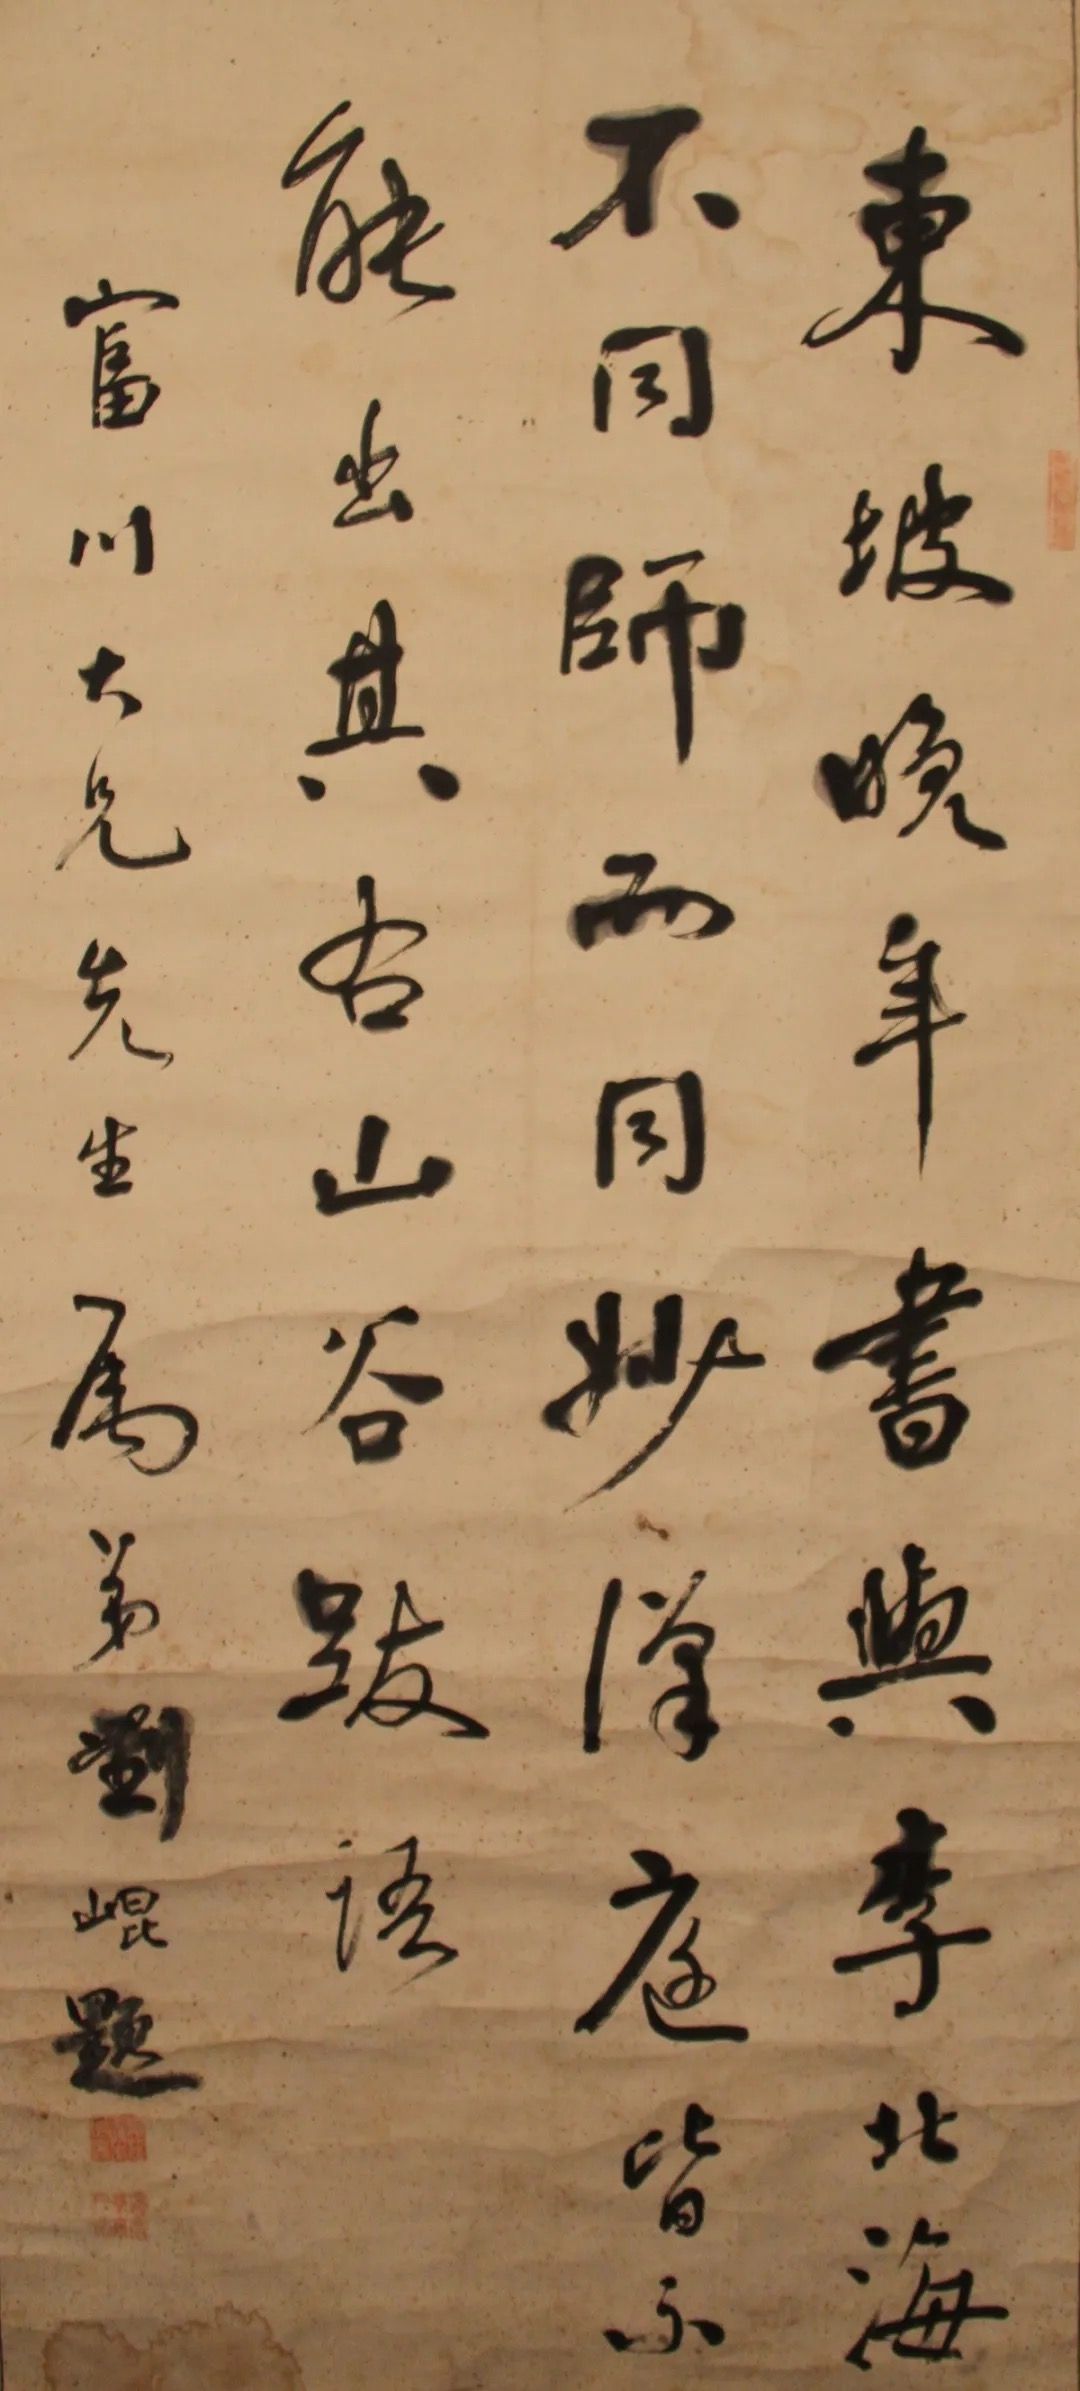 東坡晚年書與李北海
不同師而同妙漢庭皆不
能出其右山谷跋語
富川大兄先生属弟劉崐題